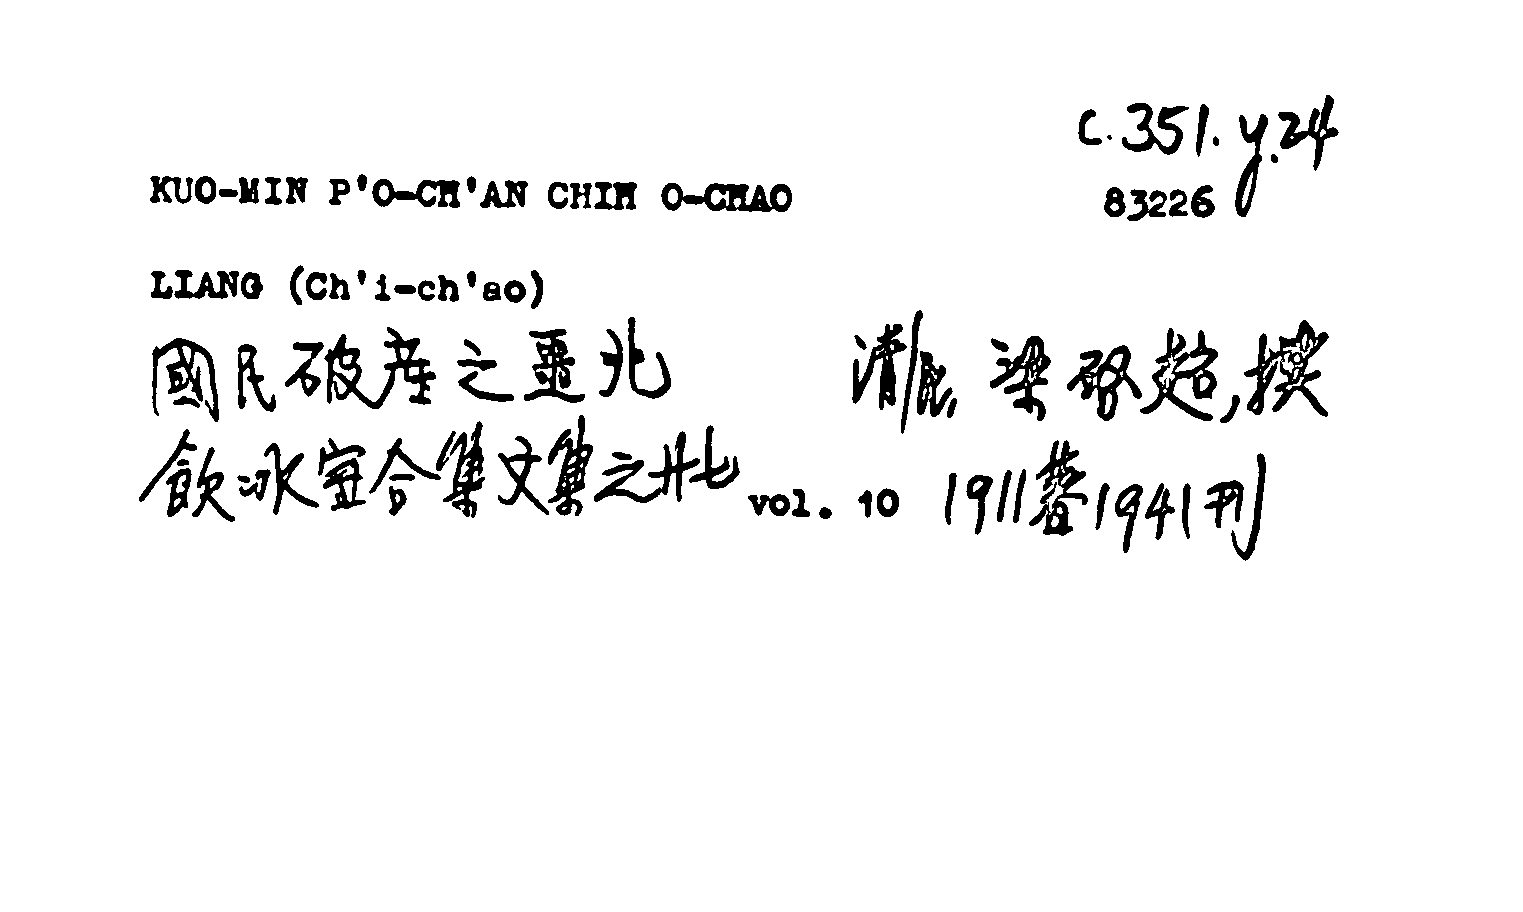 C.351.y.24
KUO-MIN P'O-CH'AN CHIH O-CHAO 83226
LIANG (Ch'i-ch'ao)
國民破産之噩兆 清/民, 梁啓超, 撰
飲冰室合集文集之廿七 vol. 10 1911著1941刊